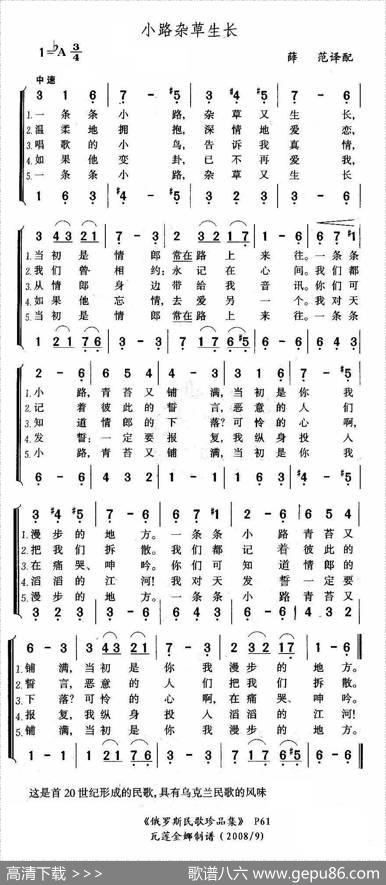 小路杂草生长
1=♭A 3/4
薛 范译配
中速
3 1 6 | 7 - ♯5 | 3 ♯4 ♯5 | 7 - 6 |
1.一条条小路,杂草又生长,
2.温柔地拥抱,深情地爱恋,
3.唱歌的小鸟,告诉我真情,
4.如果他变卦,已不再爱我,
5.一条条小路,杂草又生长
1 6 3 | ♯4 - ♯5 | 1 7 3 | 3 - 6 |
3 43 21 | 7 - 3 | 2 32 17 | 1 - 6 | 6 7 ♯1 |
1.当初是情郎常在路上来往。一条条
2.我们曾相约:永记在心间。我们都
3.从情郎身边带给我音讯。你们可
4.如果他忘情去爱另一个。我对天
5.当初是情郎常在路上来往。一条条
1 21 76
2 - 6 | 5 4 2 | 4 - 3 | 3 1 6 | 7 - ♯5 |
1.小路,青苔又铺满,当初是你我
2.记着彼此的誓言,恶意的人们
3.知道情郎的下落?可怜的心啊,
4.发誓:一定要报复,我纵身投入
5.小路,青苔又铺满,当初是你我
3 ♯4 ♯5 | 7 - 6 | 6 7 ♯1 | 2 - 6 | 5 4 2 |
1.漫步的地方。一条条小路青苔又
2.把我们拆散。我们都记着彼此的
3.在痛哭、呻吟。你们可知道情郎的
4.滔滔的江河!我对天发誓一定要
5.漫步的地方。一条条小路青苔又
4 - 3 | 3 43 21 | 7 - 3 | 2 32 17 | 1 - 6 ‖
1.铺满,当初是你我漫步的地方。
2.誓言,恶意的人们把我们拆散。
3.下落?可怜的心啊,在痛哭、呻吟。
4.报复,我纵身投入滔滔的江河!
5.铺满,当初是你我漫步的地方。
这是首20世纪形成的民歌,具有乌克兰民歌的风味
《俄罗斯民歌珍品集》 P61
瓦莲金娜制谱(2008/9)
高清下载 = = = 〉
歌谱八六 www.gepu86.com